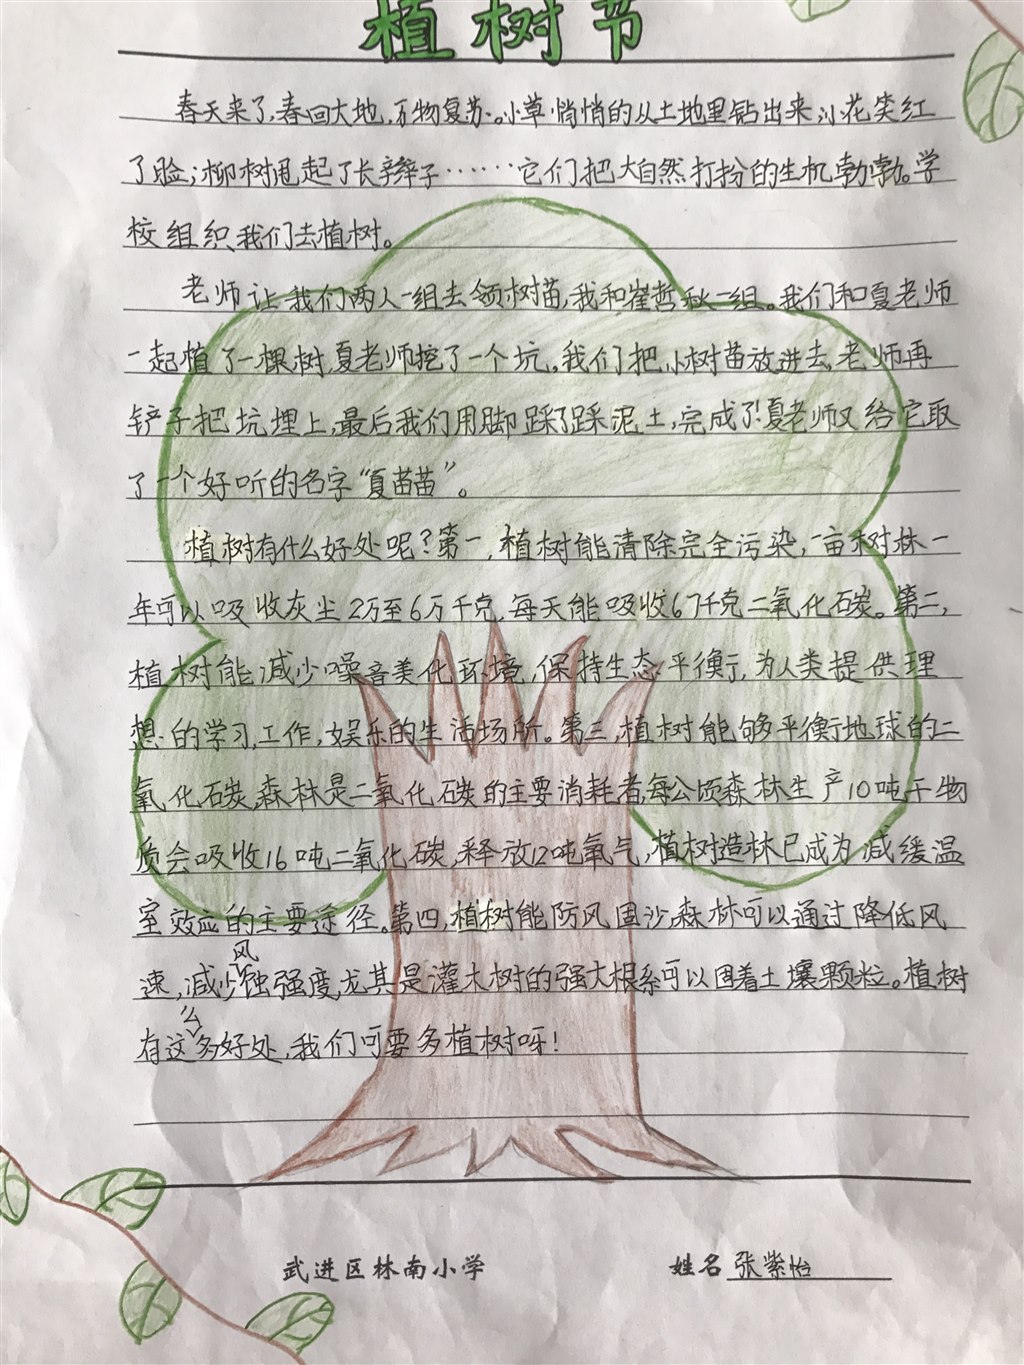 植树节
春天来了,春回大地,万物复苏。小草悄悄的从土地里钻出来,小花笑红
了脸;柳树甩起了长辫子······它们把大自然打扮的生机勃勃。学
校组织我们去植树。
老师让我们两人一组去领树苗,我和崔哲秋一组。我们和夏老师
一起植了一棵树,夏老师挖了一个坑,我们把小树苗放进去,老师再
铲子把坑埋上,最后我们用脚踩了踩泥土,完成了!夏老师又给它取
了一个好听的名字“夏苗苗”。
植树有什么好处呢?第一,植树能清除完全污染,一亩树林一
年可以吸收灰尘2万至6万千克,每天能吸收67千克二氧化石炭。第二,
植树能减少噪音美化环境,保持生态平衡,为人类提供理
想的学习,工作,娱乐的生活场所。第三,植树能够平衡地球的二
氧化石炭,森林是二氧化石炭的主要消耗者,每公顷森林生产10吨干物
质会吸收16吨二氧化碳,释放12吨氧气,植树造林已成为减缓温
室效应的主要途径。第四,植树能防风固沙,森林可以通过降低风
速,减少风蚀强度,尤其是灌木树的强大根系可以固着土壤颗粒。植树
有这么多好处,我们可要多植树呀!
武进区林南小学 姓名 张紫怡